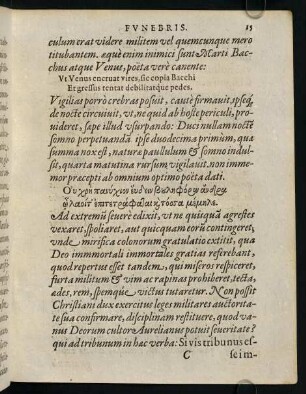 FVNEBRIS. 15
culum erat videre militem vel quemcunque mero
titubantem. aequè enim inimici sunt Marti Bac-
chus atque Venus, poëta verè canente:
Vt Venus eneruat vires, sic copia Bacchi
Et gressus tentat debilitatque pedes.
Vigilias porrò crebras posuit, cautè firmauit, ipseq́;
de nocte circuiuit, vt, ne quid ab hoste periculi, pro-
uideret, saepe illud vsurpando: Duci nullam nocte
semno perpetuandā ipse duodecima primùm, quae
summa nox est, natura paullulum & somnio indul-
sit, quarta matutina rursum vigilauit. non imme-
mor praecepti ab omnium optimo poëta dati.
Οὐ χρὴ παννύχιον εὕδειν βουληφόρον ἄνδρα
ᾧ λαοί τ' ἐπιτετράφαται καὶ τόσσα μέμηλε.
Ad extremū seuerè edixit, vt ne quiiquā agrestes
vexaret, spoliaret, aut quicquam eorū contingeret,
vnde mirifica colonorum gratulatio extitit, qua
Deo immmortali immortales gratias referebant,
quod repertus esset tandem, qui miseros respiceret,
furta militum & vim ac rapinas prohiberet, tecta,
aedes, rem, spemque victus tutaretur. Non possit
Christiani dux exercitus leges militares auctorita-
te sua confirmare, disciplinam restituere, quod va-
nus Deorum cultor Aurelianus potuit seueritate?
qui ad tribunum in hac verba: Si vis tribunus es-
C se im-